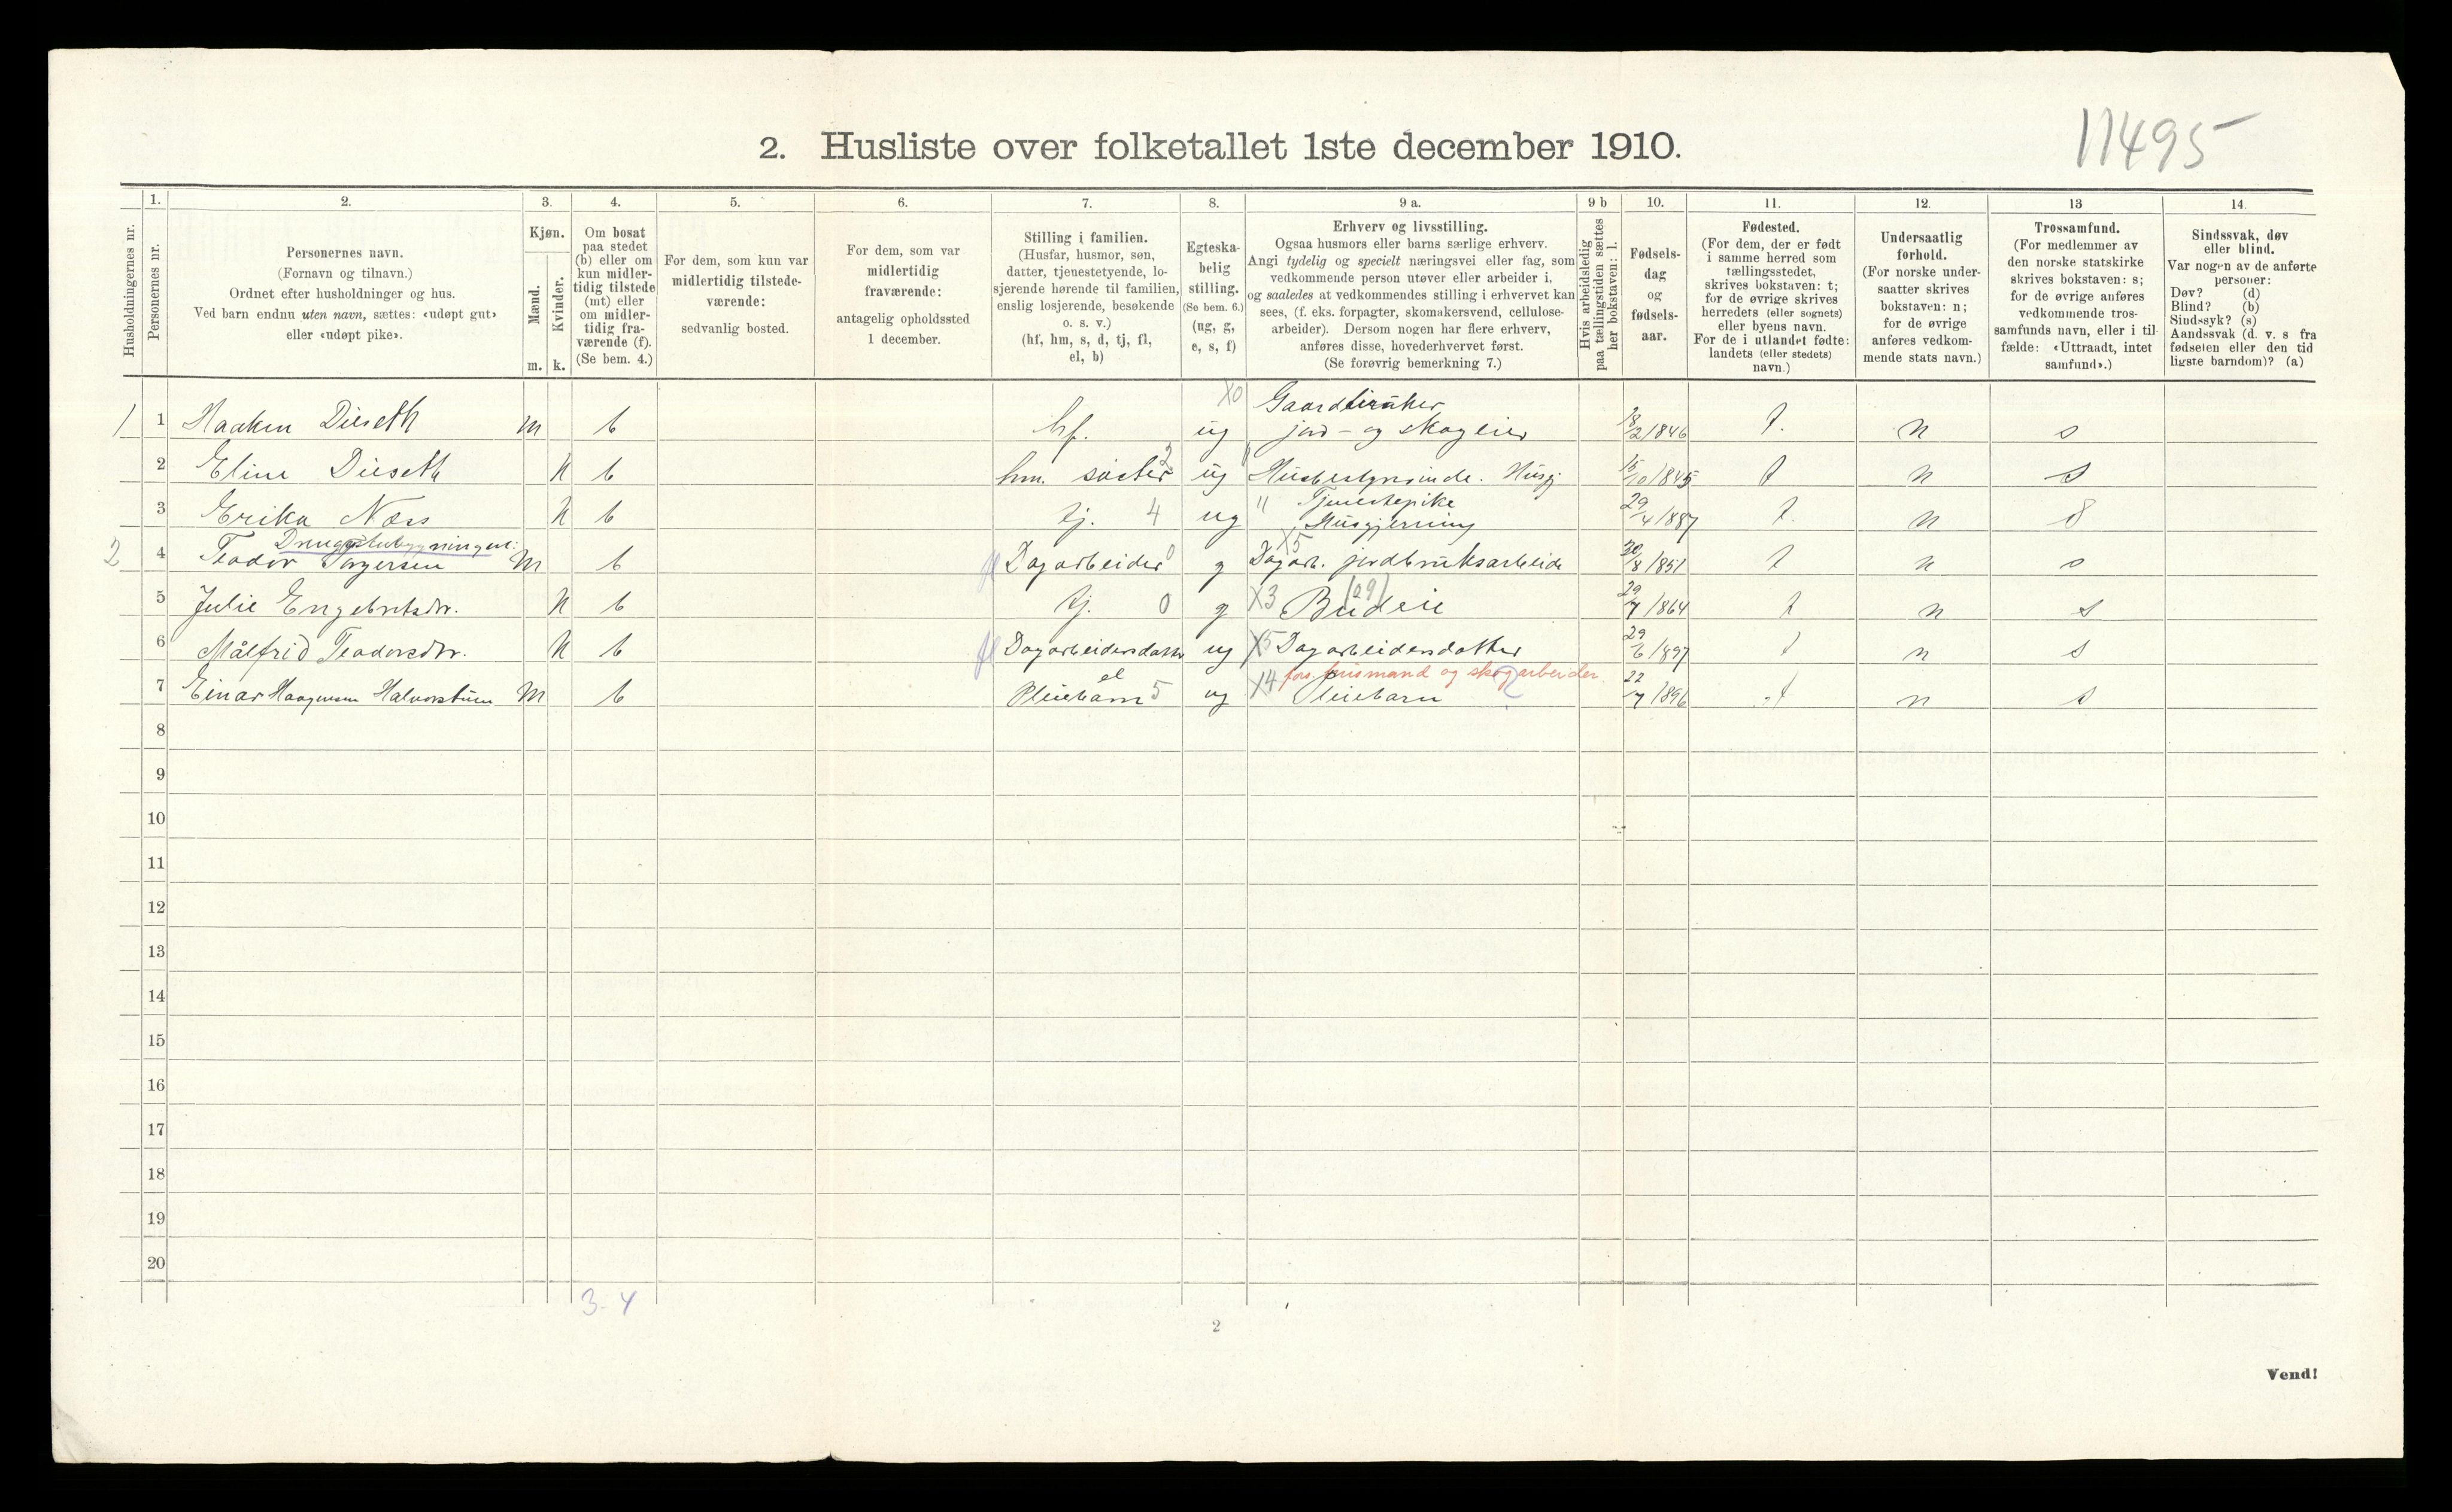 11495
2. Husliste over folketallet 1ste december 1910.
Husholdningernes nr.
1.
Personernes nr.
2.
Personernes navn.
(Fornavn og tilnavn.)
Ordnet efter husholdninger og hus.
Ved barn endnu uten navn, sættes: «udøpt gut»
eller «udøpt pike».
3.
Kjøn.
Mænd.
Kvinder.
m. k.
4.
Om bosat
paa stedet
(b) eller om
kun midler-
tidig tilstede
(mt) eller
om midler-
tidig fra-
værende (f).
(Se bem. 4.)
5.
For dem, som kun var
midlertidig tilstede-
værende:
sedvanlig bosted.
6.
For dem, som var
midlertidig
fraværende:
antagelig opholdssted
1 december.
7.
Stilling i familien.
(Husfar, husmor, søn,
datter, tjenestetyende, lo-
sjerende hørende til familien,
enslig losjerende, besøkende
o. s. v.)
(hf, hm, s, d, tj, fl,
el, b)
8.
Egteska-
belig
stilling.
(Se bem. 6.)
(ug, g,
e, s, f)
9 a.
Erhverv og livsstilling.
Ogsaa husmors eller barns særlige erhverv.
Angi tydelig og specielt næringsvei eller fag, som
vedkommende person utøver eller arbeider i,
og saaledes at vedkommendes stilling i erhvervet kan
sees, (f. eks. forpagter, skomakersvend, cellulose-
arbeider). Dersom nogen har flere erhverv,
anføres disse, hovederhvervet først.
(Se forøvrig bemerkning 7.)
9 b
Hvis arbeidsledig
paa tællingstiden sættes
her bokstaven: l.
10.
Fødsels-
dag
og
fødsels-
aar.
11.
Fødested.
(For dem, der er født
i samme herred som
tællingsstedet,
skrives bokstaven: t;
for de øvrige skrives
herredets (eller sognets)
eller byens navn.
For de i utlandet fødte:
landets (eller stedets)
navn.)
12.
Undersaatlig
forhold.
(For norske under-
saatter skrives
bokstaven: n;
for de øvrige
anføres vedkom-
mende stats navn.)
13
Trossamfund.
(For medlemmer av
den norske statskirke
skrives bokstaven: s;
for de øvrige anføres
vedkommende tros-
samfunds navn, eller i til-
fælde: «Uttraadt, intet
samfund».)
14.
Sindssvak, døv
eller blind.
Var nogen av de anførte
personer:
Døv? (d)
Blind? (b)
Sindssyk? (s)
Aandssvak (d. v. s fra
fødselen eller den tid
ligste barndom)? (a)
X0 Gaardbruker
1 1 Haaken Dieseth m b hf. ug jord- og skogeier 18/2 1846 t. n s
2 Eline Dieseth k b hm. søster 2 ug " Husbestyrerinde. Husgj 15/10 1845 t n s
3 Erika Næss k b tj. 4 ug " Tjenestepike 29/4 1887 t. n s
Husgjerning
Drengestubygningen:
2 4 Teodor Torgersen m b fl Dagarbeider 0 g X5 Dagarb. jordbruksarbeide 30/8 1851 t n s
5 Julie Engebretsdtr. k b tj. 0 g X3 Budeie (29) 29/7 1864 t n s
6 Målfrid Teodorsdtr. k b fl Dagarbeidersdatter ug X5 Dagarbeidersdatter 29/6 1897 t n s
el fors. husmand og skogarbeider
7 Einar Haagensen Halvorstuen m b Pleiebarn 5 ug X4 Pleiebarn 22/7 1896 t n s
8
9
10
11
12
13
14
15
16
17
18
19
20
3-4
2
Vend!